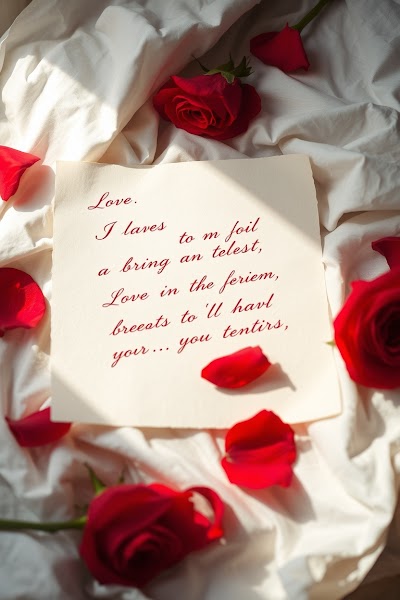 Love.
I laves to m foil
a bring an telest,
Love in the feriem,
breeats to'll havl
your... you tentirs,